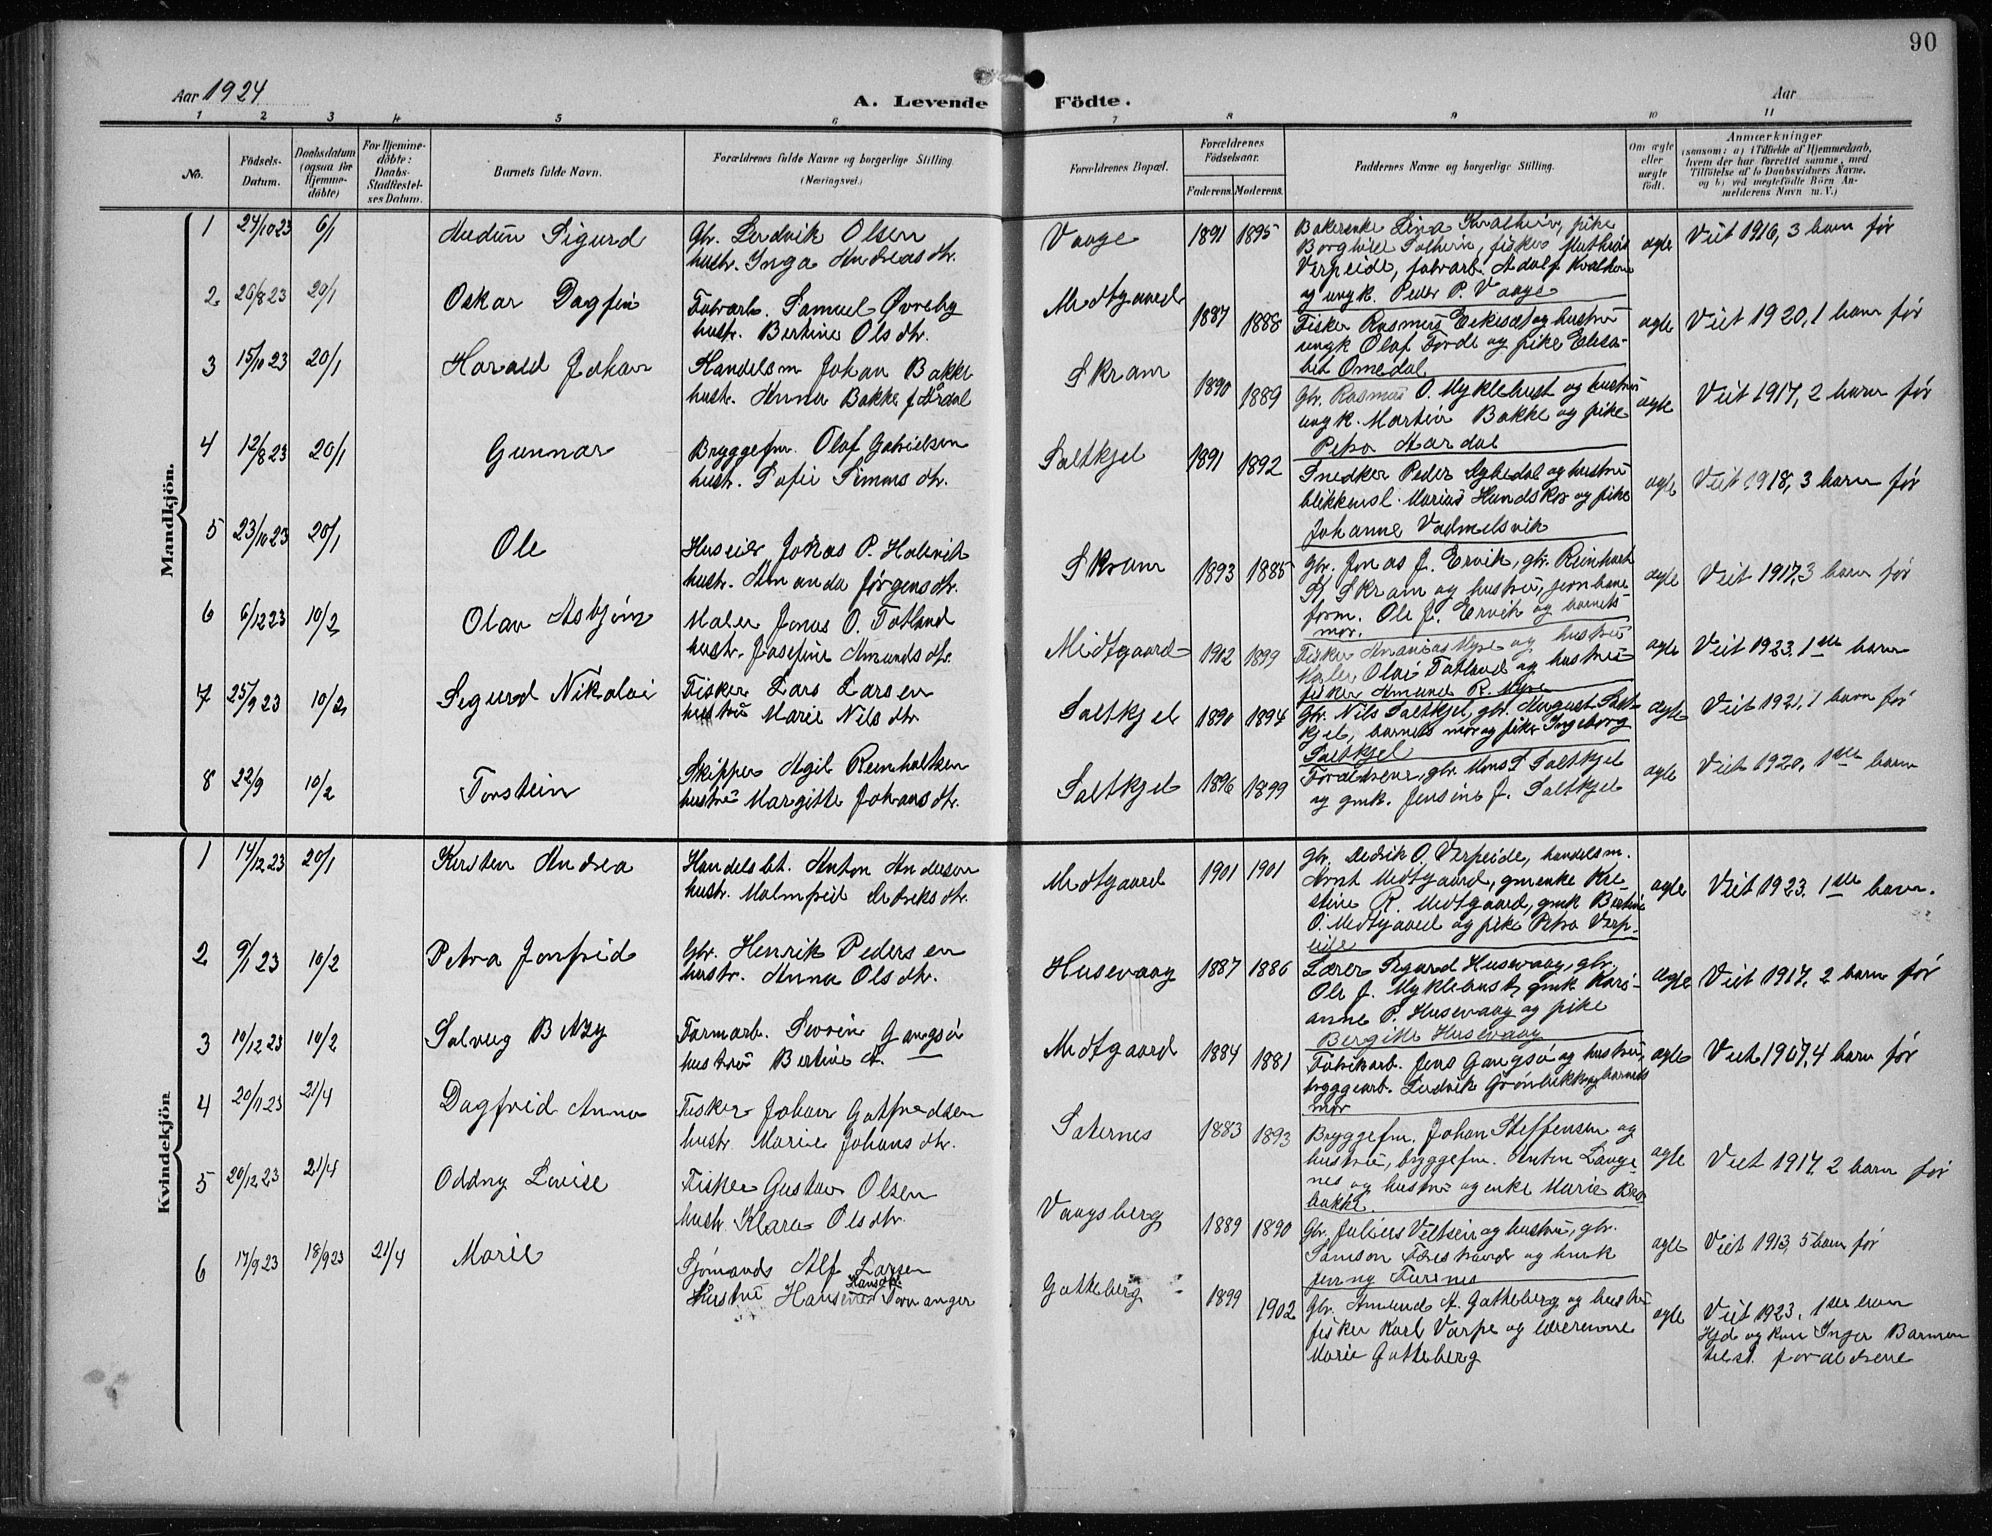 90
Aar 1924
A. Levende Födte.
Aar
1 2 3 4 5 6 7 8 9 10 11
No.
Födsels-Datum.
Daabsdatum (ogsaa for Hjemmedöbte)
For Hjemmedöbte: Daabs-Stadfestelses Datum.
Barnets fulde Navn.
Forældrenes fulde Navne og borgerlige Stilling.
(Næringsvei.)
Forældrenes Bopæl.
Forældrenes Födselsaar.
Faderens. Moderens.
Faddernes Navne og borgerlige Stilling.
Om ægte eller uægte födt.
Anmærkninger
(saasom: a) i Tilfælde af Hjemmedaab, hvem der har forrettet samme, med Tilföielse af to Daabsvidners Navne, og b) ved uægtefödte Börn Anmelderens Navn m. V.)
Mandkjön.
1 24/10 23 6/1 Audun Sigurd
Gbr. Ludvik Olsen
hustr. Inga Andreasdtr.
Vaage 1891 1895
Bakerenke Lina Kvalheim, pike
Borghild Solheim, fisker Mathias
Verpeide, fabrarb. Adolf Kvalheim
og ungk. Peder P. Vaage
ægte Viet 1916, 3 barn før
2 26/8 23 20/1 Oskar Dagfin
Fabrarb. Samuel Øvreby
hustr. Bertine Olsdtr.
Midtgaard 1887 1888
Fisker Rasmus Eikeset og hustru
ungk Olaf Förde og pike Elisa-
bet Omedal
ægte Viet 1920, 1 barn før
3 15/10 23 20/1 Harald Johan
Handelsm Johan Bakke
hustr. Anna Bakke f. Årdal
Skram 1890 1889
Gbr. Rasmus O. Myklebust og hustru
ungk. Martin Bakke og pike
Petra Aardal
ægte Viet 1917, 2 barn før
4 12/8 23 20/1 Gunnar
Bryggefm. Olaf Gabrielsen
hustr. Sofie Simonsdtr.
Saltkjel 1891 1892
Snedker Peder Myhedal og hustru
blikkensl. Marius Hundskor og pike
Johanne Vadmelsvik
ægte Viet 1918, 3 barn før
5 23/10 23 20/1 Ole
Huseier Jonas P. Holevik
hustr. Amanda Jørgensdtr.
Skram 1893 1885
Gbr. Jonas J. Ervik, gbr. Reinhart
P. Skram og hustru, jernbane
form. Ole J. Ervik og barnets
mor.
ægte Viet 1917, 3 barn før
6 6/12 23 10/2 Olav Asbjörn
Maler Jonas O. Totland
hustr. Josefine Amundsdtr.
Midtgaard 1902 1899
Fisker Ananias Myre og hustru
Maler Olai Totland og hustru
fisker Amund R. Myre
ægte Viet 1923. 1ste barn
7 25/9 23 10/2 Sigurd Nikolai
Fisker Lars Larsen
hustru Marie Nilsdtr
Saltkjel 1890 1894
Gbr. Nils Saltkjel, gbr. August Salt-
kjel, barnets mor og pike Ingeborg
Saltkjel
ægte Viet 1921, 1 barn før
8 22/9 10/2 Torstein
Skipper Agil Reinholtsen
hustru Margitte Johansdtr.
Saltkjel 1896 1899
Foreldrene, gbr. Mons S. Saltkjel
og gmk. Jensine J. Saltkjel
ægte Viet 1920, 1ste barn
Kvindekjön
1 14/12 23 20/1 Kirsten Andrea
Handelsbt. Anton Andersen
hustr. Malmfrid Didriksdtr.
Midtgaard 1901 1901
gbr. Didrik O. Verpeide, handelsm.
Arnt Midtgaard, gmenke Kri-
stine R. Midtgaard, gmk Bertine
O. Midtgaard og pike Petra Verp-
eide
ægte Viet 1923. 1ste barn.
2 9/1 23 10/2 Petra Jonfrid
Gbr. Henrik Pedersen
hustr. Anna Olsdtr.
Husevaag 1887 1886
Lærer Sigurd Husevaag, gbr.
Ole J. Myklebust, gmk Kars-
anne P. Husevaag og pike
Bergitte Husevaag
ægte Viet 1917, 2 barn før
3 10/12 23 10/2 Solveig Betzy
Formarb. Severin Gangsøi
hustru Bertine A.
Midtgaard 1884 1881
Fabrikarb. Jens Gangsøi og hustru,
bryggearb. Ludvik Grönbekk og barnets
mor
ægte Viet 1907, 4 barn før
4 20/11 23 21/4 Dagfrid Anna
Fisker Johan Gotfredsen
hustr. Marie Johansdtr.
Saternes 1883 1893
Bryggefm. Johan Steffensen og
hustru, bryggefm. Anton Lange-
nes og hustru og enke Marie Bro-
bakke.
ægte Viet 1917 2 barn før
5 20/12 23 21/4 Oddny Lovise
Fisker Gustav Olsen
hustr. Klara Olsdtr.
Vaagsberg 1889 1890
Gbr. Julius Veltsein og hustru, gbr.
Samson Færestrand og hmk
Jenny Furenes
ægte Viet 1913, 5 barn før
6 17/9 23 18/9 23 21/4 Marie
Sjömands Alf Larsen
hustru Hansine Hansdtr. Tornanger
Gotteberg 1899 1902
Gbr. Amund A. Gotteberg og hustru
fisker Karl Varpe og lærerinne
Marie Gotteberg
ægte Viet 1923. 1ste barn
Hjd og kone Inger Barmen
tilst. forældrene